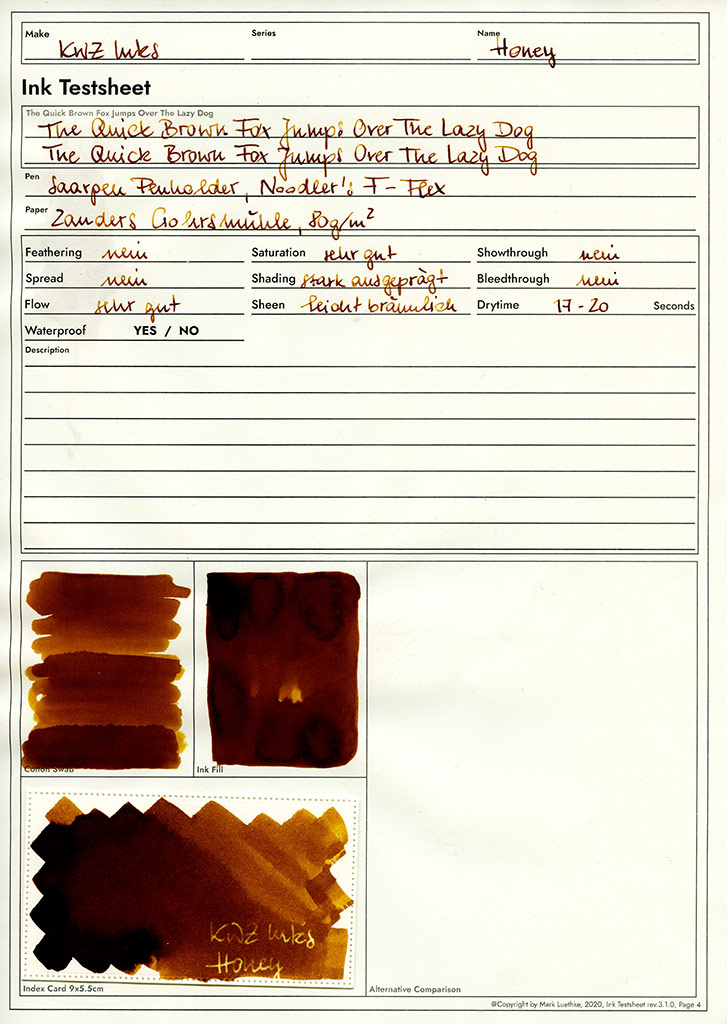 Make KWZ Inks Series Name Honey
Ink Testsheet
The Quick Brown Fox Jumps Over The Lazy Dog
The Quick Brown Fox Jumps Over The Lazy Dog
The Quick Brown Fox Jumps Over The Lazy Dog
Pen Saarpen Penholder, Noodler's F-Flex
Paper Zanders Gohrsmühle, 80g/m²
Feathering nein Saturation sehr gut Showthrough nein
Spread nein Shading stark ausgeprägt Bleedthrough nein
Flow sehr gut Sheen leicht bräunlich Drytime 17-20 Seconds
Waterproof YES / NO
Description
Cotton Swab Ink Fill
KWZ Inks
Honey
Index Card 9x5.5cm Alternative Comparison
@Copyright by Mark Luethke, 2020, Ink Testsheet rev.3.1.0, Page 4